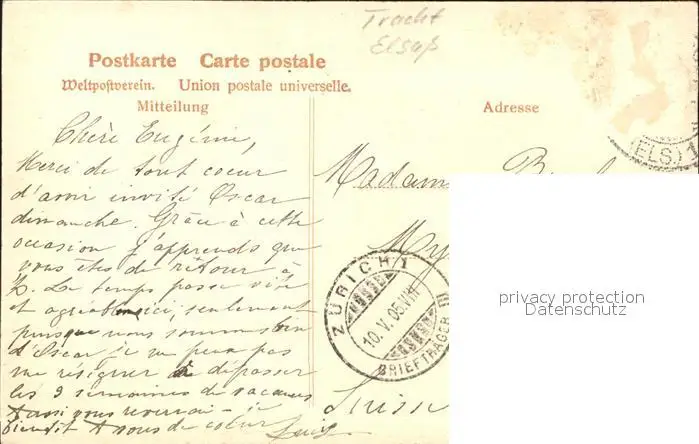 Tracht
Elsaß
Postkarte Carte postale
Weltpostverein. Union postale universelle.
Mitteilung
Adresse
Chère Eugénie,
Merci de tout coeur
d'avoir invité Oscar
dimanche. Grâce à cette
occasion j'apprends que
vous êtes de retour à
Z. Le temps passe vite
et agréablement ici, seulement
puisque nous sommes loin
d'Oscar je ne peux pas
me résigner à dépasser
les 3 semaines de vacances
Aussi vous reverrai-je
bientôt. A vous de coeur
Madame
My
Suisse
(ELS.) 1
ZÜRICH 1
10.V.05.VIII
III
BRIEFTRÄGER
privacy protection
Datenschutz